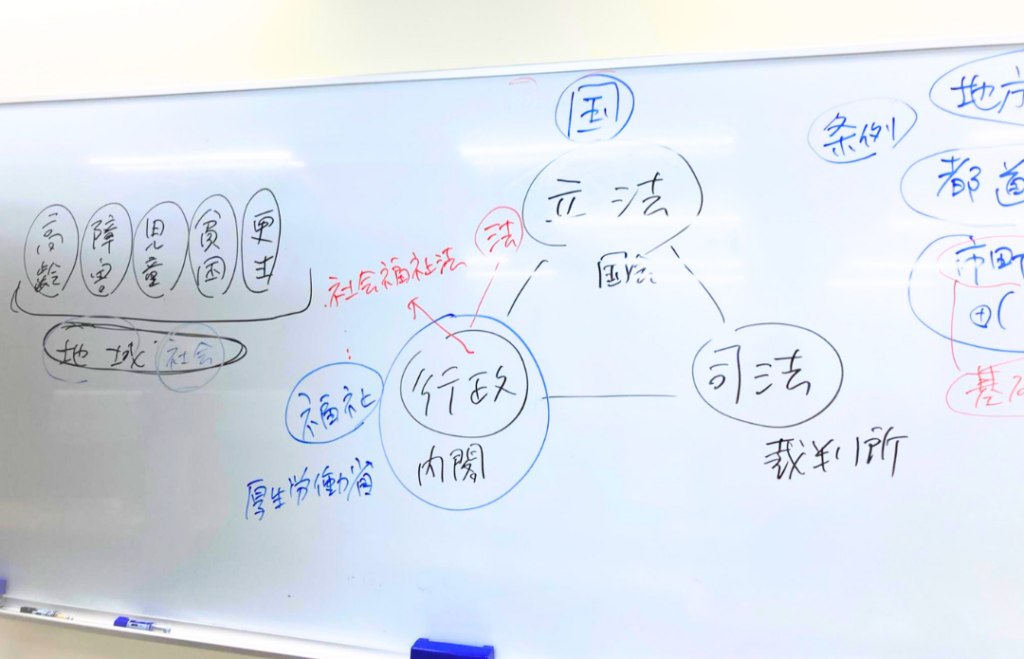 高齢
障害
児童
貧困
更生
地域 社会
国
立法
国会
法
社会福祉法
行政
内閣
福祉
厚生労働省
司法
裁判所
条例
地方
都道
市町
基